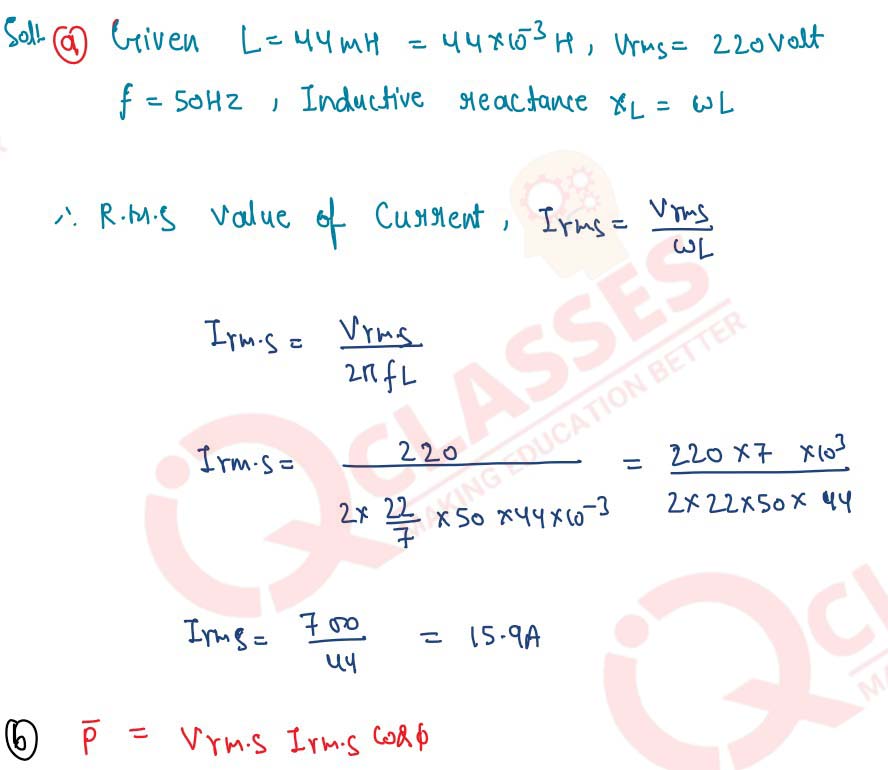 Soln (a) Given L = 44mH = 44×10⁻³ H, Vrms = 220 Volt
f = 50Hz , Inductive reactance XL = ωL
∴ R.M.S Value of Current, Irms = Vrms / ωL
Irm.s = Vrms / 2πfL
Irm.s = 220 / 2× 22/7 ×50 ×44×10⁻³ = 220×7 ×10³ / 2×22×50×44
Irms = 700 / 44 = 15.9A
(b) P̄ = Vrm.s Irm.s cosϕ
IQ CLASSES
MAKING EDUCATION BETTER